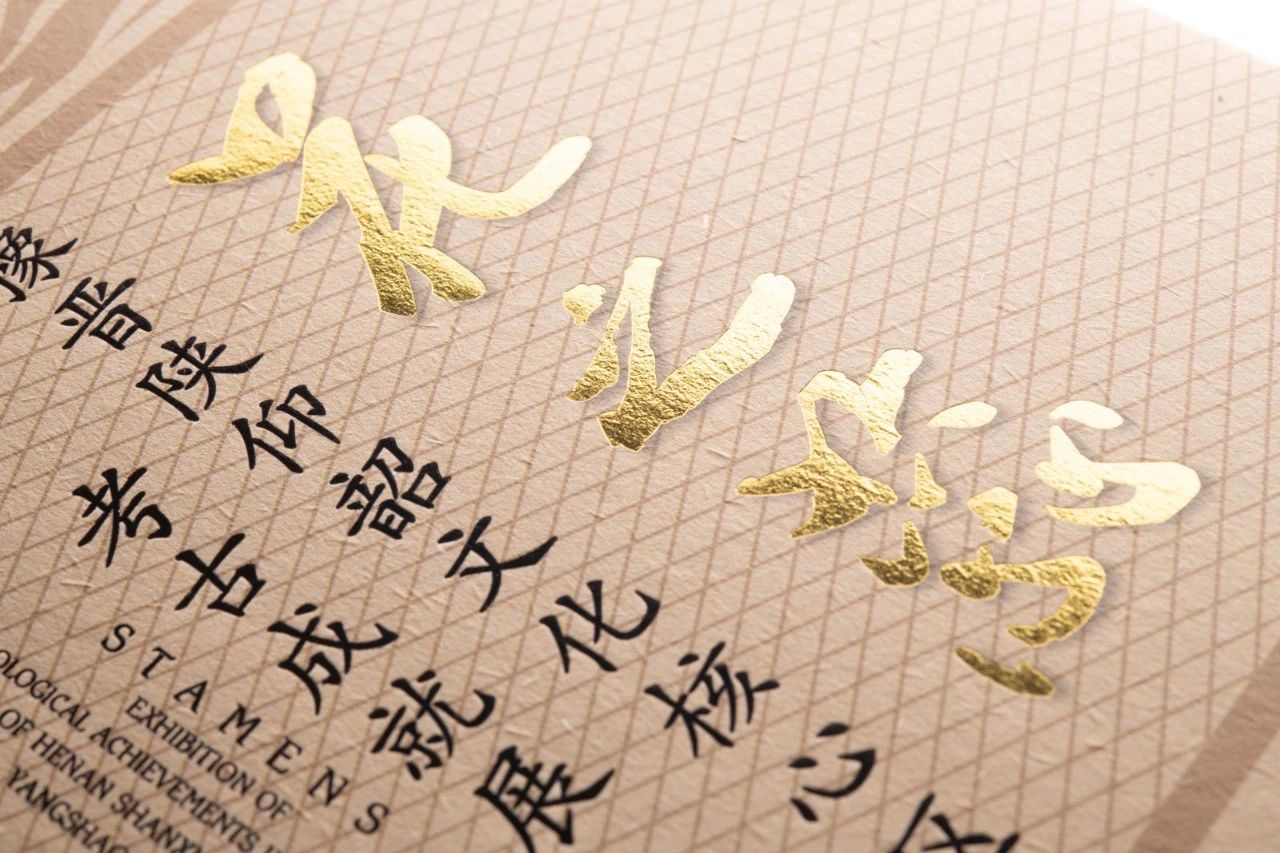 之
豫晋陕仰韶文化核心区
考古成就展
STAMENS
EXHIBITION OF
ACHIEVEMENTS
OF HENAN